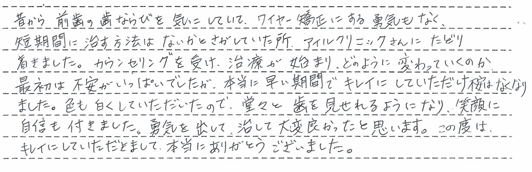 昔から前歯の歯ならびを気にしていて、ワイヤー矯正にする勇気もなく、
短期間に治す方法はないかとさがしていた所、アイルクリニックさんにたどり
着きました。カウンセリングを受け、治療が始まり、どのように変わっていくのか
最初は不安がいっぱいでしたが、本当に早い期間でキレイにしていただけ なくなり
ました。色も白くしていただいたので、堂々と歯を見せれるようになり、笑顔に
自信も付きました。勇気を出して、治して大変良かったと思います。この度は、
キレイにしていただきまして、本当にありがとうございました。